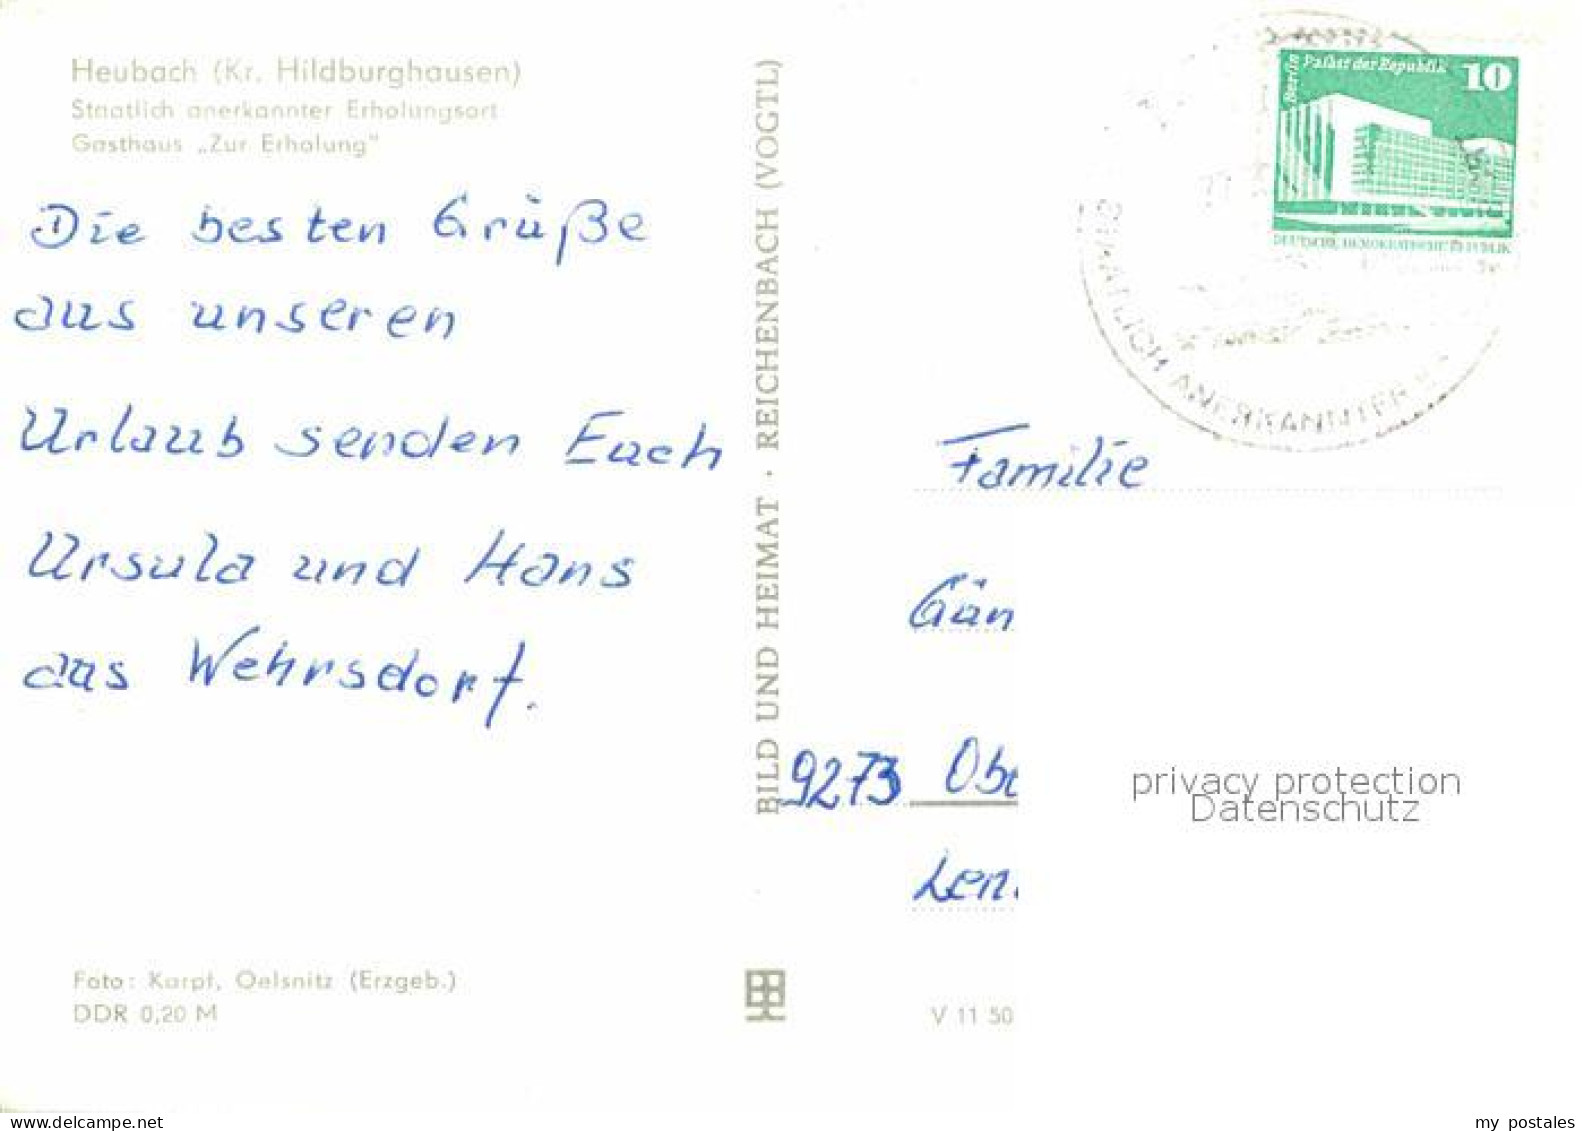 Heubach (Kr. Hildburghausen)
Staatlich anerkannter Erholungsort
Gasthaus „Zur Erholung"
Die besten Grüße
aus unseren
Urlaub senden Euch
Ursula und Hans
aus Wehrsdorf.
Foto: Karpf, Oelsnitz (Erzgeb.)
DDR 0,20 M
BILD UND HEIMAT · REICHENBACH (VOGTL)
Berlin Palast der Republik 10
DEUTSCHE DEMOKRATISCHE REPUBLIK
STAATLICH ANERKANNTER
Familie
Gän
9273 Obe
Len.
V 11 50
privacy protection
Datenschutz
my postales